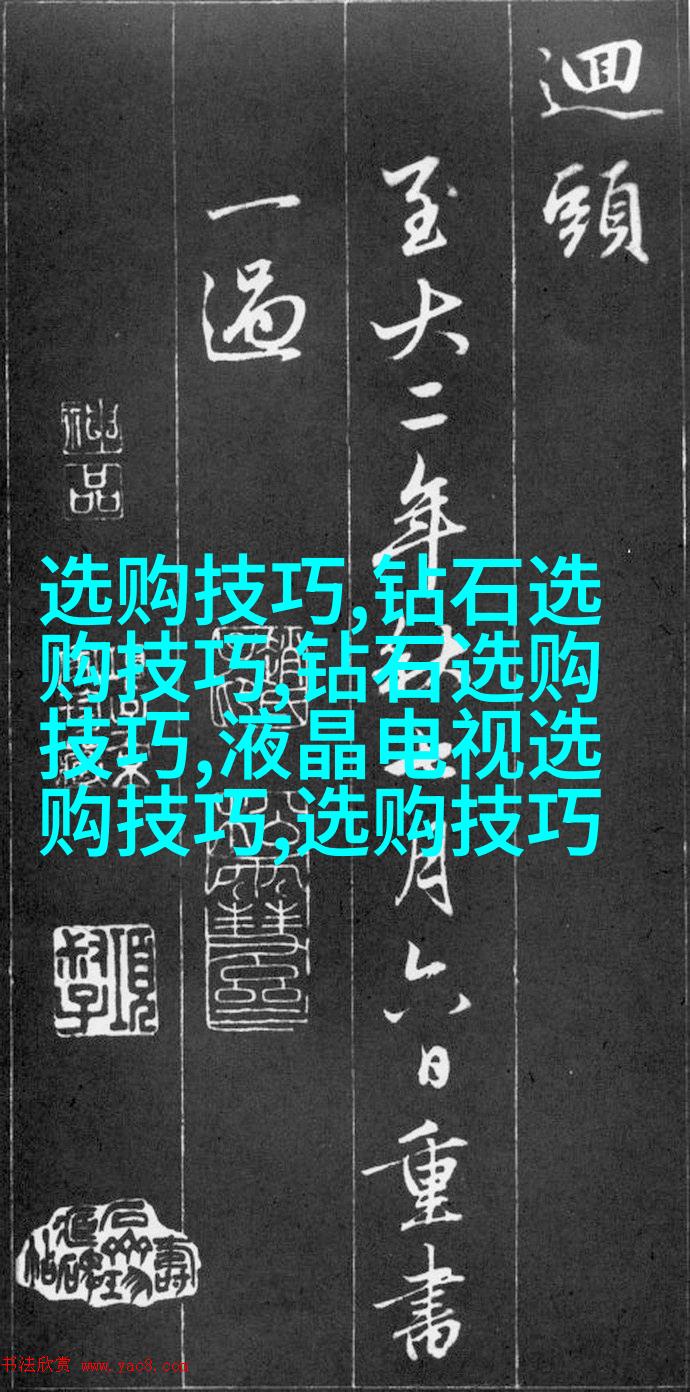 迴頭
至大二年秋七月六日重書
一過
神品
項叔子
選購技巧,钻石选
购技巧,钻石选购
技巧,液晶电视选
购技巧,选购技巧
书法欣赏 www.yac8.com